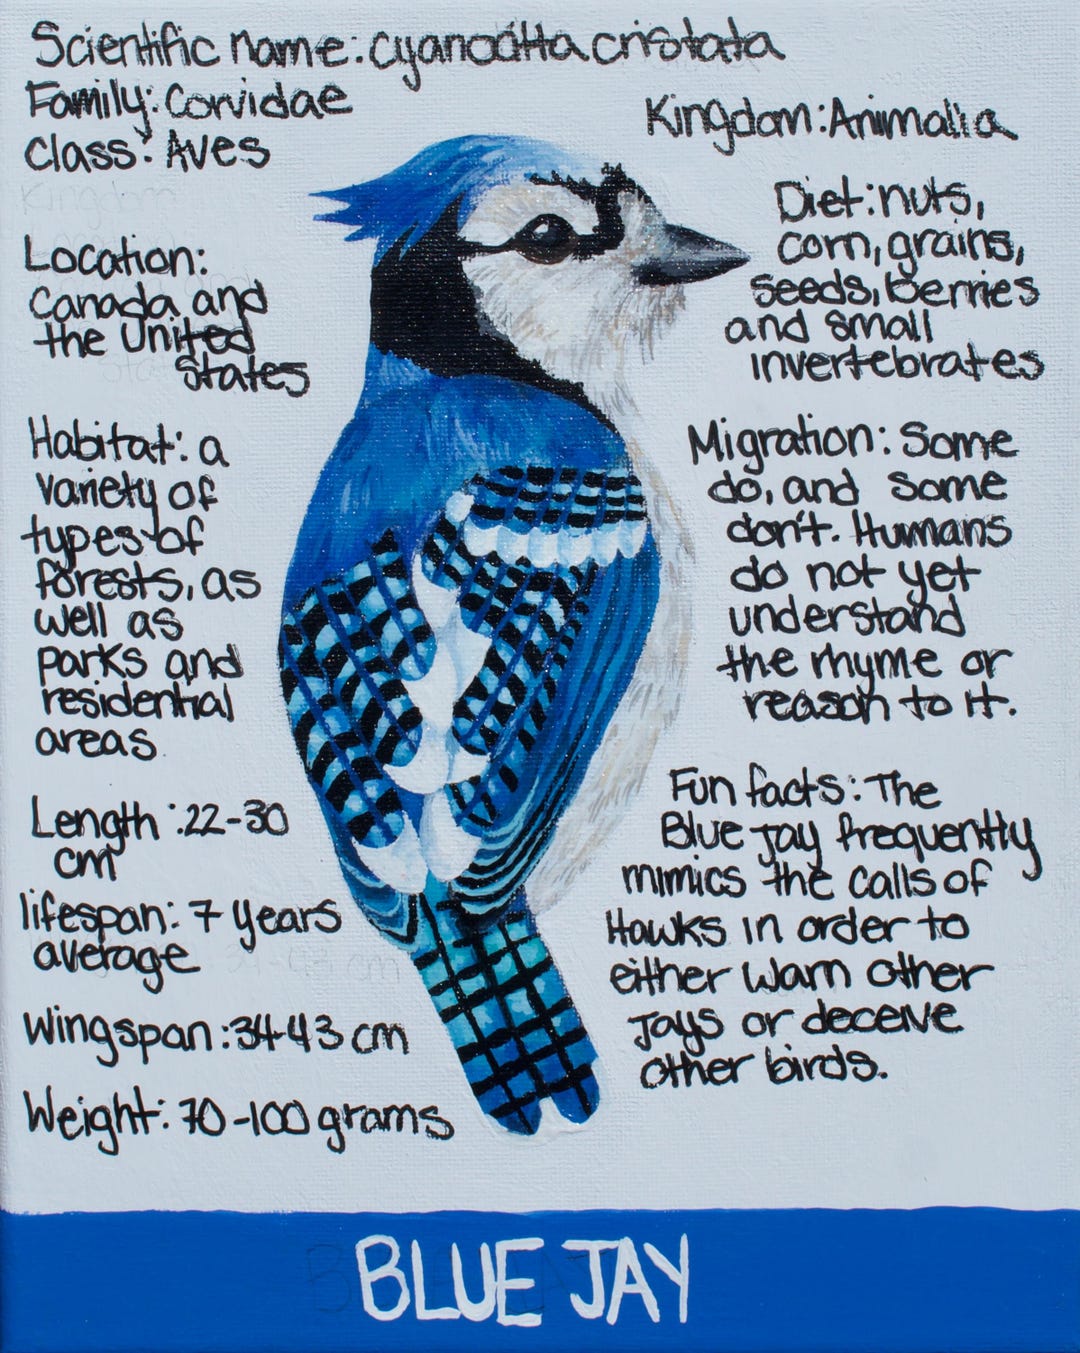 Scientific name: cyanocitta cristata
Family: Corvidae
class: Aves
Kingdom: Animalia
Location:
Canada and
the United
States
Habitat: a
variety of
types of
forests, as
well as
parks and
residential
areas
Length: 22-30
cm
lifespan: 7 years
average
Wingspan: 34-43 cm
Weight: 70-100 grams
Diet: nuts,
corn, grains,
seeds, berries
and small
invertebrates
Migration: Some
do, and some
don't. Humans
do not yet
understand
the rhyme or
reason to it.
Fun facts: The
Blue Jay frequently
mimics the calls of
Hawks in order to
either warn other
Jays or deceive
other birds.
BLUE JAY